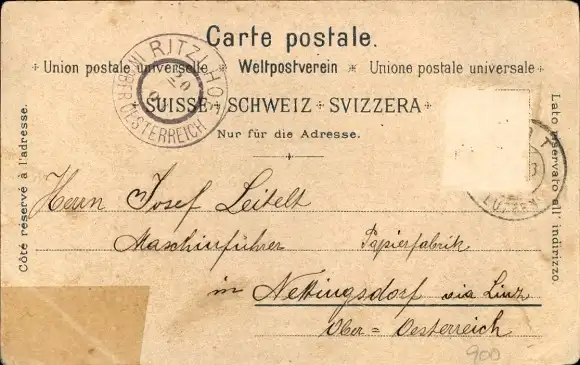 Carte postale.
Union postale universelle Weltpostverein Unione postale universale
SUISSE SCHWEIZ SVIZZERA
Nur für die Adresse.
Côté réservé à l'adresse.
Lato riservato all' indirizzo
OESTERREICH
LUZERN
Herrn Josef Leitelt
Maschinführer Papierfabrik
in Nettingsdorf via Linz
Ober=Oesterreich
900